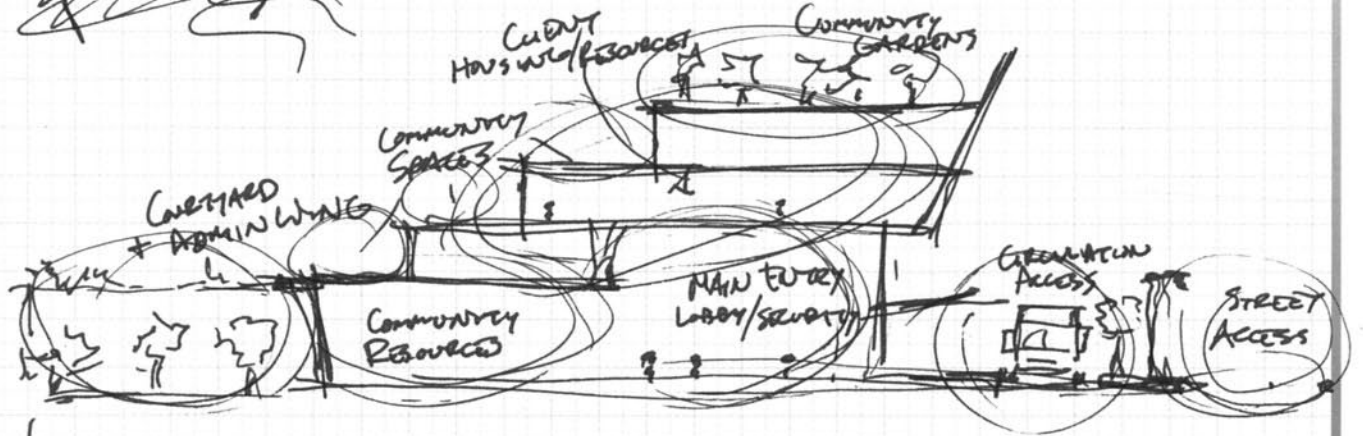 CLIENT
HOUSING/RESOURCES
COMMUNITY
GARDENS
COMMUNITY
SPACES
COURTYARD
+ ADMIN WING
COMMUNITY
RESOURCES
MAIN ENTRY
LOBBY/SECURITY
CIRCULATION
ACCESS
STREET
ACCESS